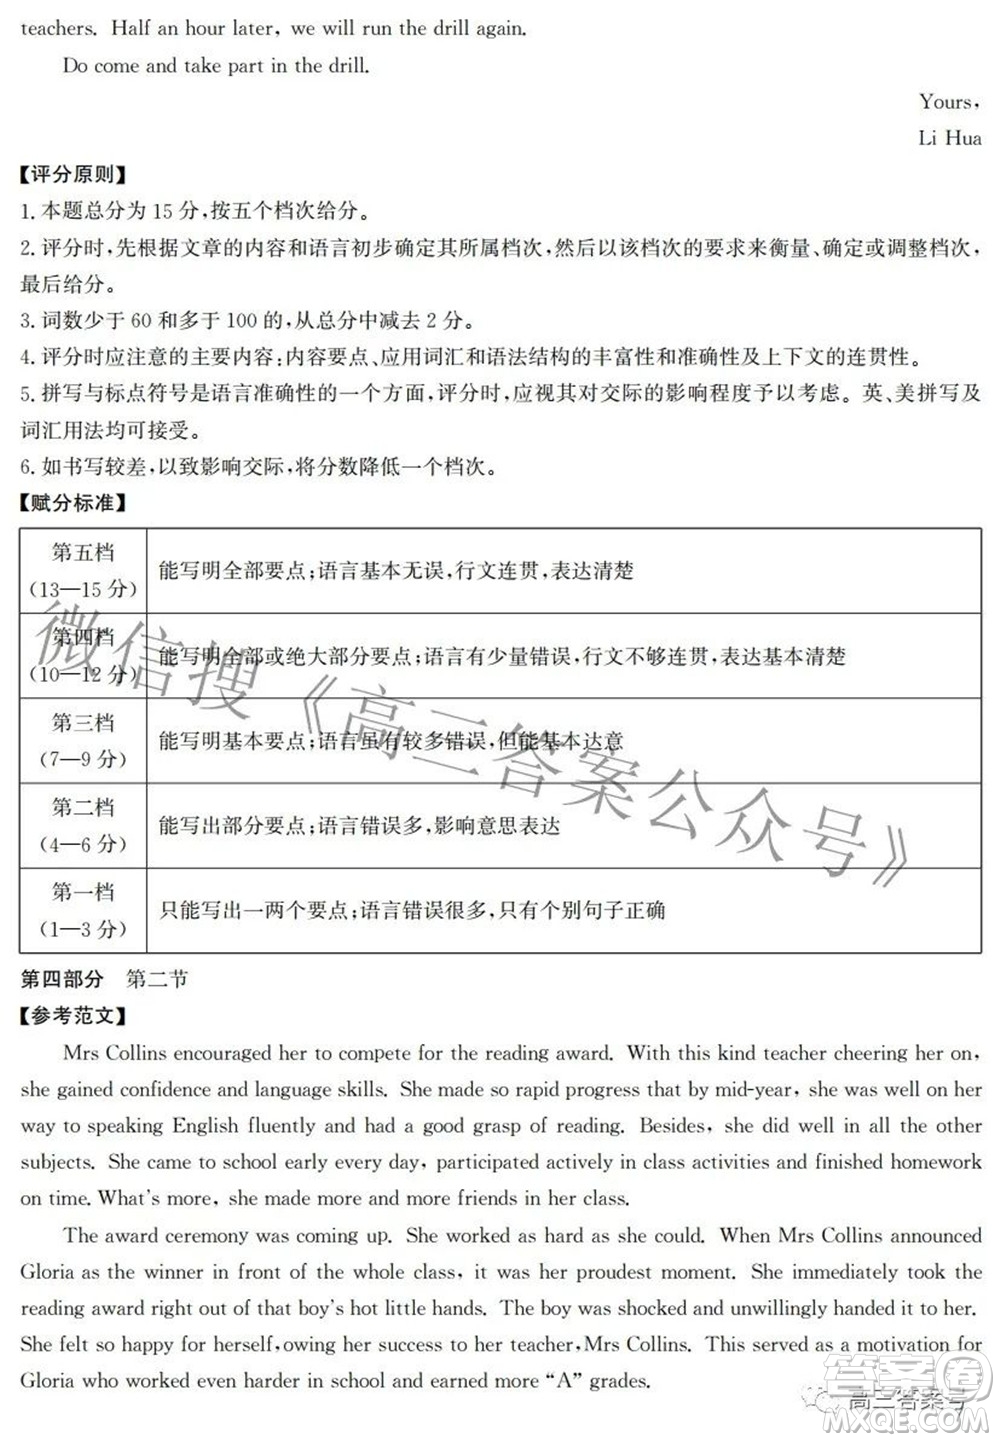 teachers. Half an hour later, we will run the drill again.
Do come and take part in the drill.
Yours,
Li Hua
【评分原则】
1.本题总分为 15 分,按五个档次给分。
2.评分时,先根据文章的内容和语言初步确定其所属档次,然后以该档次的要求来衡量、确定或调整档次,
最后给分。
3.词数少于 60 和多于 100 的,从总分中减去 2 分。
4.评分时应注意的主要内容:内容要点、应用词汇和语法结构的丰富性和准确性及上下文的连贯性。
5.拼写与标点符号是语言准确性的一个方面,评分时,应视其对交际的影响程度予以考虑。英、美拼写及
词汇用法均可接受。
6.如书写较差,以致影响交际,将分数降低一个档次。
【赋分标准】
第五档
(13—15 分)
能写明全部要点;语言基本无误,行文连贯,表达清楚
第四档
(10—12 分)
能写明全部或绝大部分要点;语言有少量错误,行文不够连贯,表达基本清楚
第三档
(7—9 分)
能写明基本要点;语言虽有较多错误,但能基本达意
第二档
(4—6 分)
能写出部分要点;语言错误多,影响意思表达
第一档
(1—3 分)
只能写出一两个要点;语言错误很多,只有个别句子正确
微信搜《高三答案公众号》
第四部分 第二节
【参考范文】
Mrs Collins encouraged her to compete for the reading award. With this kind teacher cheering her on,
she gained confidence and language skills. She made so rapid progress that by mid-year, she was well on her
way to speaking English fluently and had a good grasp of reading. Besides, she did well in all the other
subjects. She came to school early every day, participated actively in class activities and finished homework
on time. What's more, she made more and more friends in her class.
The award ceremony was coming up. She worked as hard as she could. When Mrs Collins announced
Gloria as the winner in front of the whole class, it was her proudest moment. She immediately took the
reading award right out of that boy's hot little hands. The boy was shocked and unwillingly handed it to her.
She felt so happy for herself,owing her success to her teacher,Mrs Collins. This served as a motivation for
Gloria who worked even harder in school and earned more “A” grades.
答案圈
高三答案号
MXQE.COM